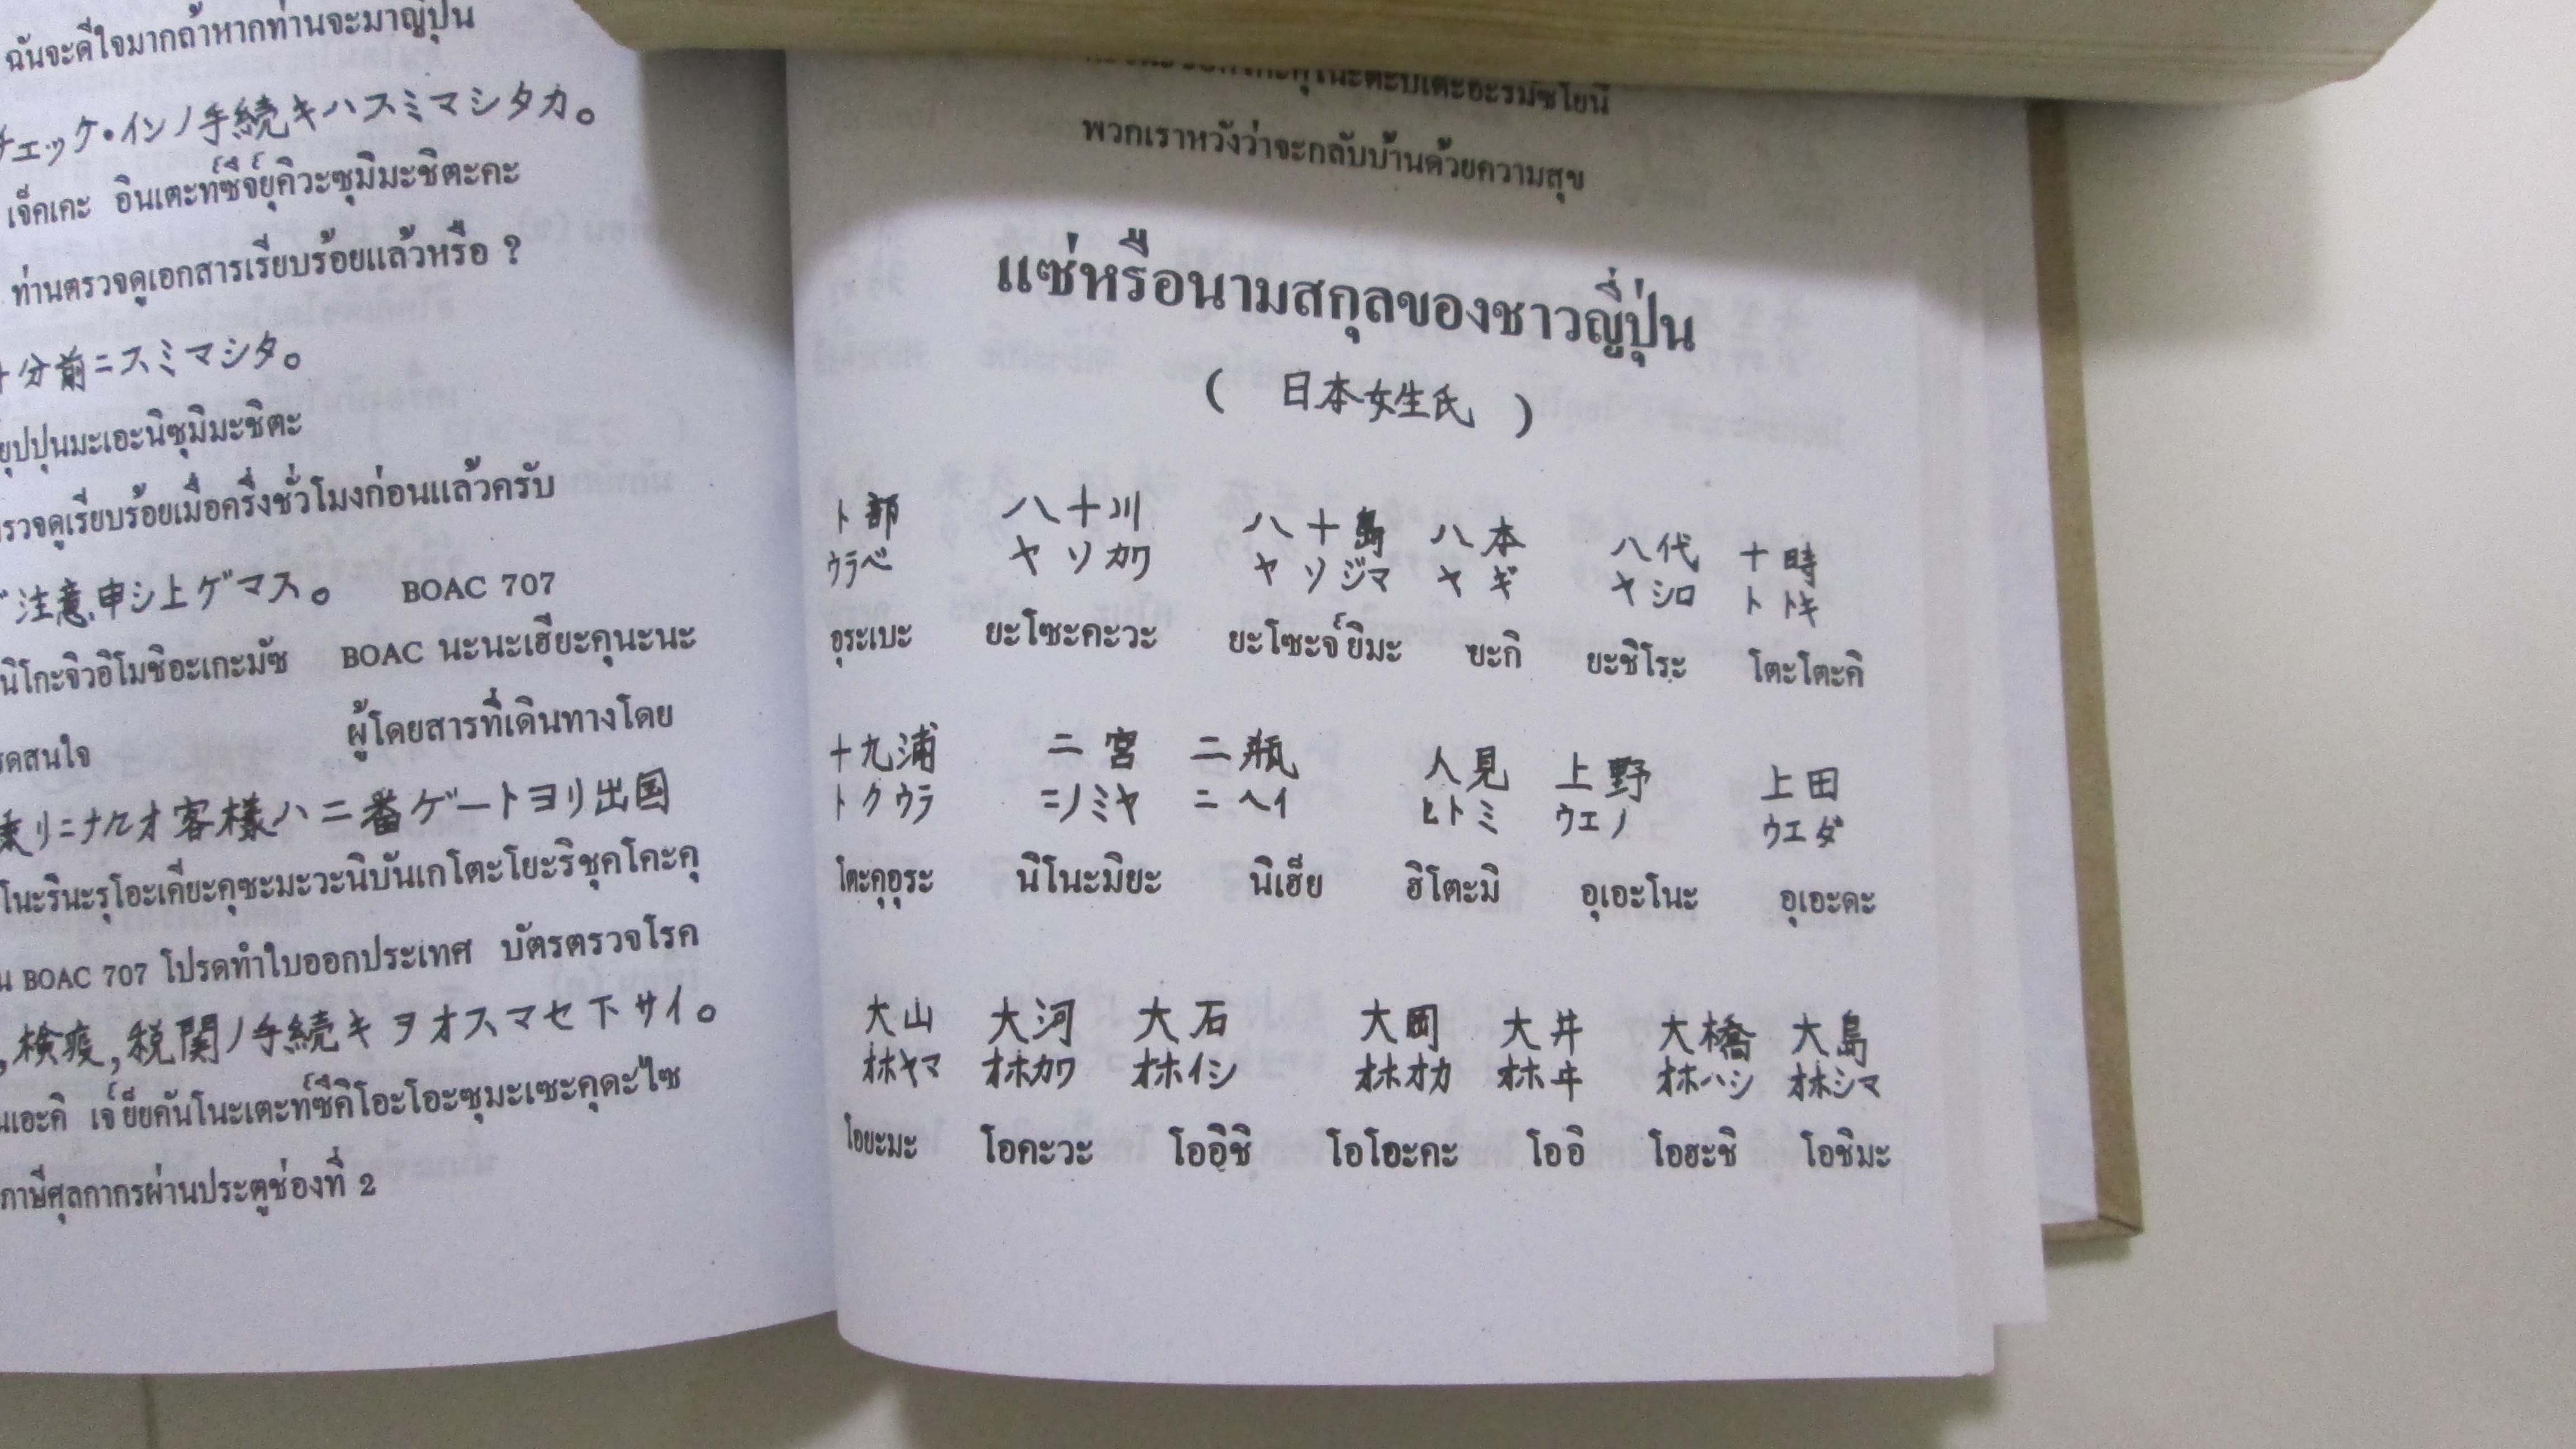 ฉันจะดีใจมากถ้าหากท่านจะมาญี่ปุ่น
チェック・インノ手続キハスミマシタカ。
เจ็คเคะ อินเตะท์ซึจ์ยุคิวะซุมิมะชิตะคะ
ท่านตรวจดูเอกสารเรียบร้อยแล้วหรือ ?
分前ニスミマシタ。
ยุปปุนมะเอะนิซุมิมะชิตะ
รวจดูเรียบร้อยเมื่อครึ่งชั่วโมงก่อนแล้วครับ
注意申シ上ゲマス。 BOAC 707
นิโกะจิวอิโมชิอะเกะมัซ BOAC นะนะเฮียะคุนะนะ
ผู้โดยสารที่เดินทางโดย
รดสนใจ
乗リニナルオ客様ハ二番ゲートヨリ出国
โนะรินะรุโอะเคียะคุซะมะวะนิบันเกโตะโยะริชุคโคะคุ
น BOAC 707 โปรดทำใบออกประเทศ บัตรตรวจโรค
, 検疫, 税関ノ手続キヲオスマセ下サイ。
นเอะคิ เจ์ย็ยคันโนะเตะท์ซึคิโอะโอะซุมะเซะคุดะไซ
ภาษีศุลกากรผ่านประตูช่องที่ 2
พวกเราหวังว่าจะกลับบ้านด้วยความสุข
แซ่หรือนามสกุลของชาวญี่ปุ่น
( 日本女生氏 )
卜部 八十川 八十島 八本 八代 十時
ウラベ ヤソカワ ヤソジマ ヤギ ヤシロ トトキ
อุระเบะ ยะโซะคะวะ ยะโซะจ์ยิมะ ยะกิ ยะชิโระ โตะโตะคิ
十九浦 二宮 二瓶 人見 上野 上田
トクウラ ニノミヤ ニヘイ ヒトミ ウエノ ウエダ
โตะคุอุระ นิโนะมิยะ นิเฮ็ย ฮิโตะมิ อุเอะโนะ อุเอะดะ
大山 大河 大石 大岡 大井 大橋 大島
オホヤマ オホカワ オホイシ オホオカ オホヰ オホハシ オホシマ
โอยะมะ โอคะวะ โออิชิ โอโอะคะ โออิ โอฮะชิ โอชิมะ